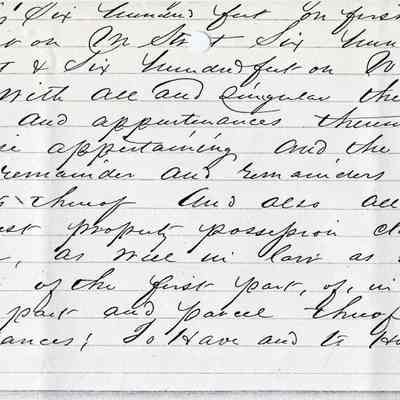 Six hundred feet on first
on M Street Six hun
t & Six hundred feet on W
With all and Singular the
and appurtenances thereu
appertaining and the
remainder and remainders
thereof And also all
est property possession cl
, as well in law as
of the first part, of, in
part and parcel thereof
ances; To Have and to Ho